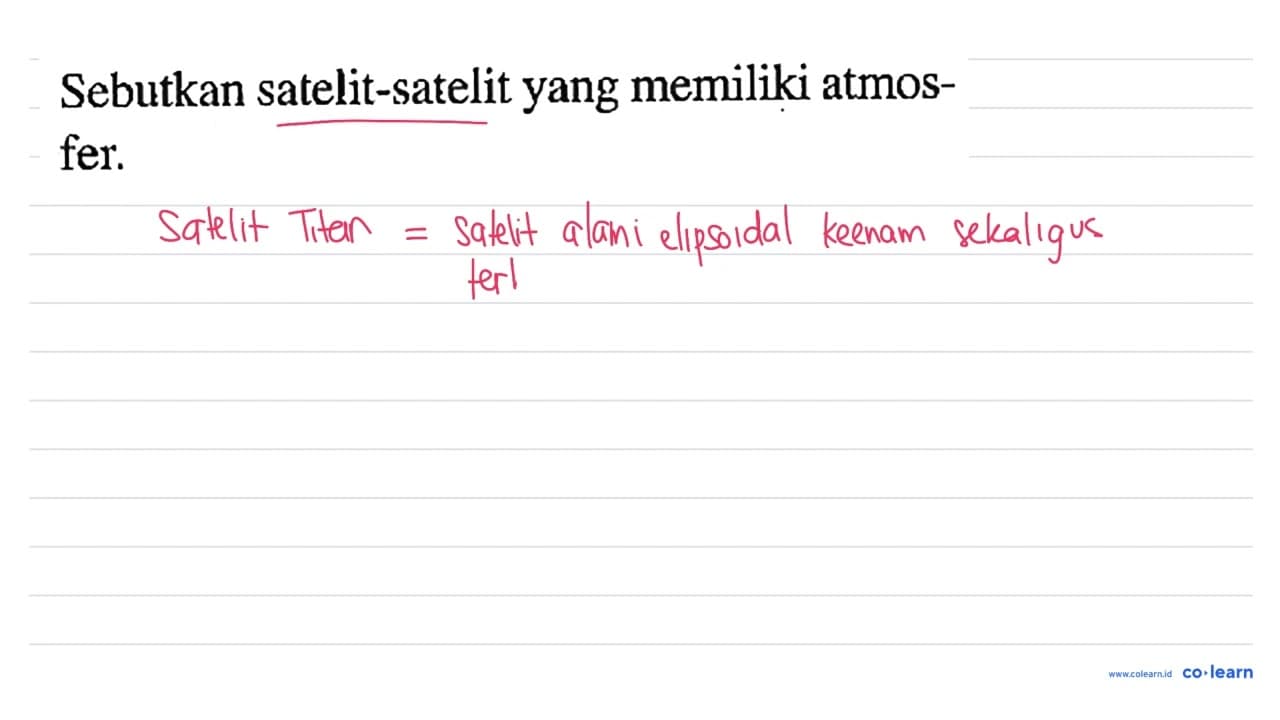 Sebutkan satelit-satelit yang memiliki atmos-
fer.
Satelit Titan = satelit alami elipsoidal keenam sekaligus
terl
www.colearn.id co·learn